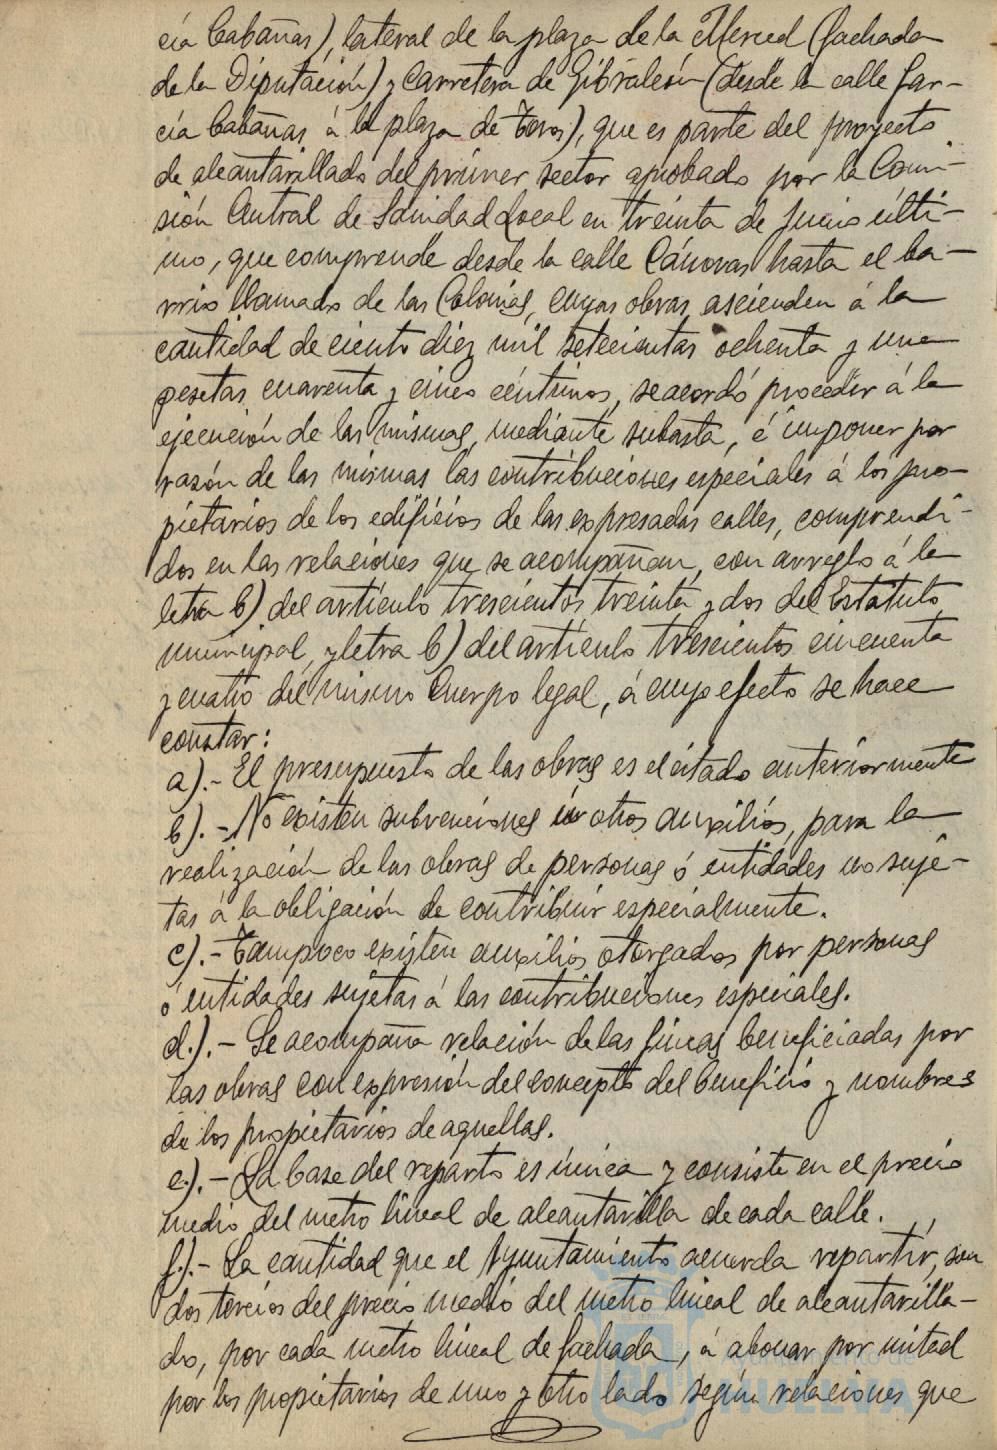 cía Cabañas), lateral de la plaza de la Merced (fachada
de la Diputación) y Carretera de Gibraleón (desde la calle Gar-
cía Cabañas á la plaza de Toros), que es parte del proyecto
de alcantarillado del primer sector aprobado por la Comi-
sión Central de Sanidad Local en treinta de Junio últi-
mo, que comprende desde la calle Cánovas hasta el ba-
rrio llamado de las Colonias, cuyas obras ascienden á la
cantidad de ciento diez mil setecientas ochenta y una
pesetas cuarenta y cinco céntimos, se acordó proceder á la
ejecución de las mismas, mediante subasta, é imponer por
razón de las mismas las contribuciones especiales á los pro-
pietarios de los edificios de las expresadas calles, comprendi-
dos en las relaciones que se acompañan, con arreglo á la
letra b) del artículo trescientos treinta y dos del Estatuto
municipal, y letra b) del artículo trescientos cincuenta
y cuatro del mismo Cuerpo legal, á cuyo efecto se hace
constar:
a).- El presupuesto de las obras es el citado anteriormente
b).- No existen subvenciones ú otros auxilios, para la
realización de las obras de personas ó entidades no suje-
tas á la obligación de contribuir especialmente.
c).- Tampoco existen auxilios otorgados por personas
ó entidades sujetas á las contribuciones especiales.
d.).- Se acompaña relación de las fincas beneficiadas por
las obras con expresión del concepto del beneficio y nombres
de los propietarios de aquellas.
e.).- La base del reparto es única y consiste en el precio
medio del metro lineal de alcantarilla de cada calle.
f.).- La cantidad que el Ayuntamiento acuerda repartir, son
dos tercios del precio medio del metro lineal de alcantarilla-
do, por cada metro lineal de fachada, á abonar por mitad
por los propietarios de uno y otro lado según relaciones que
Ayuntamiento de
HUELVA